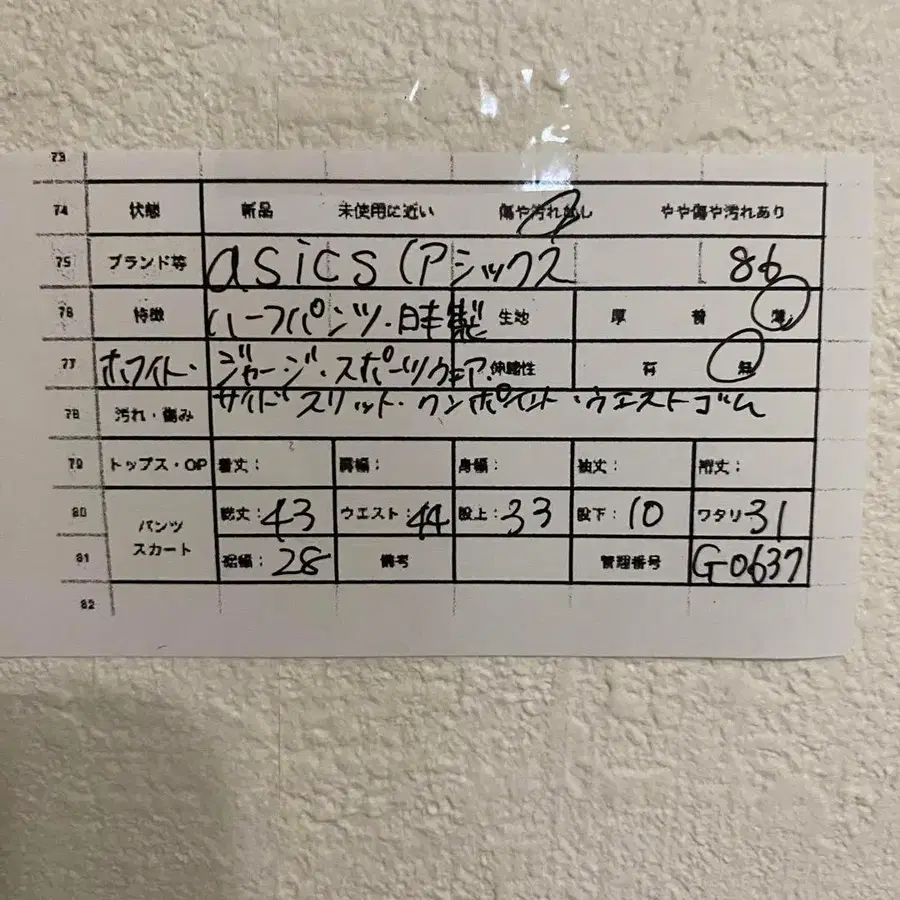 73
74 状態 新品 未使用に近い 傷や汚れなし やや傷や汚れあり
75 ブランド等 asics (アシックス 86
76 特徴 ハーフパンツ・日本製 生地 厚 普 薄
77 ホワイト・ ジャージ・スポーツウェア・ 伸縮性 有 無
78 汚れ・傷み サイドスリット・ワンポイント・ウエストゴム
79 トップス・OP 着丈: 肩幅: 身幅: 袖丈: 裄丈:
80 パンツ 総丈:43 ウエスト:44 股上:33 股下:10 ワタリ31
81 スカート 裾幅:28 備考 管理番号 G0637
82